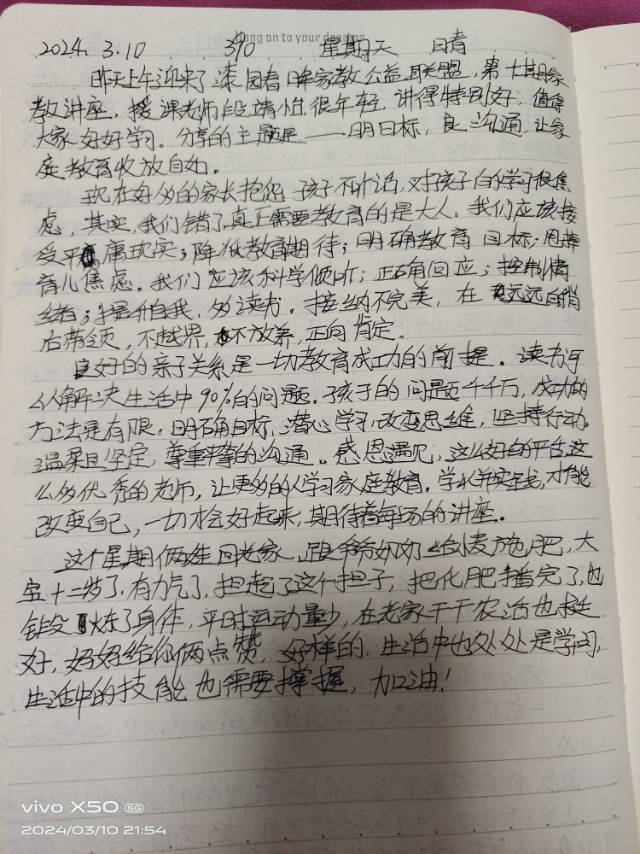 Hang on to your dreams
2024. 3.10 390 星期天 晴
昨天上午迎来了漆园春晖家教公益联盟，第十期家
教讲座，授课老师段靖怡很年轻，讲得特别好，值得
大家好好学习。分享的主题是——明目标，良沟通，让家
庭教育收放自如。
现在好多的家长抱怨孩子不听话，对孩子的学习很焦
虑，其实，我们错了真正需要教育的是大人。我们应该接
受平庸现实；降低教育期待；明确教育目标；
育儿焦虑。我们应该科学倾听；正确回应；控制情
绪；提升自我，多读书。接纳不完美，在远远的稍
后带领，不越界，不放弃，正向肯定。
良好的亲子关系是一切教育成功的前提。读书可
以解决生活中90%的问题。孩子的问题千千万，成功的
方法是有限，明确目标，潜心学习，改变思维，坚持行动，
温柔且坚定，尊重平等的沟通。感恩遇见，这么好的平台，这
么多优秀的老师，让更多的人学习家庭教育。学以并实践，才能
改变自己，一切才会好起来，期待着每场的讲座。
这个星期俩娃回老家，跟爷爷奶奶给小麦施肥，大
宝十二岁了，有力气了，担起了这个担子，把化肥播完了，也
锻炼了身体，平时运动量少，在老家干干农活也挺
好，妈妈给你俩点赞，好样的，生活中也处处是学问，
生活中的技能也需要掌握，加油！
vivo X50 5G
2024/03/10 21:54